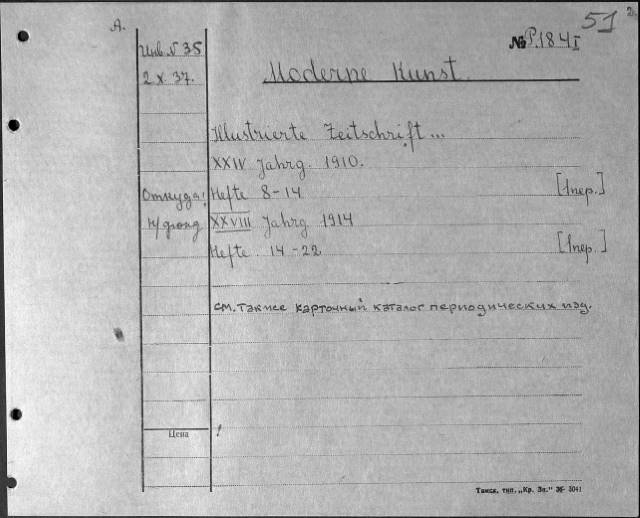 51
2.
А.
№ Р.184 I
Инв. N 35
2 X. 37.
Moderne Kunst.
Illustrierte Zeitschrift...
XXIV Jahrg. 1910.
Откуда! Hefte 8-14 [1 пер.]
н/фонд XXVIII Jahrg 1914
Hefte. 14-22 [1 пер.]
см. также карточный каталог периодических изд.
Цена !
Тамск. тип. „Кр. Зн.“